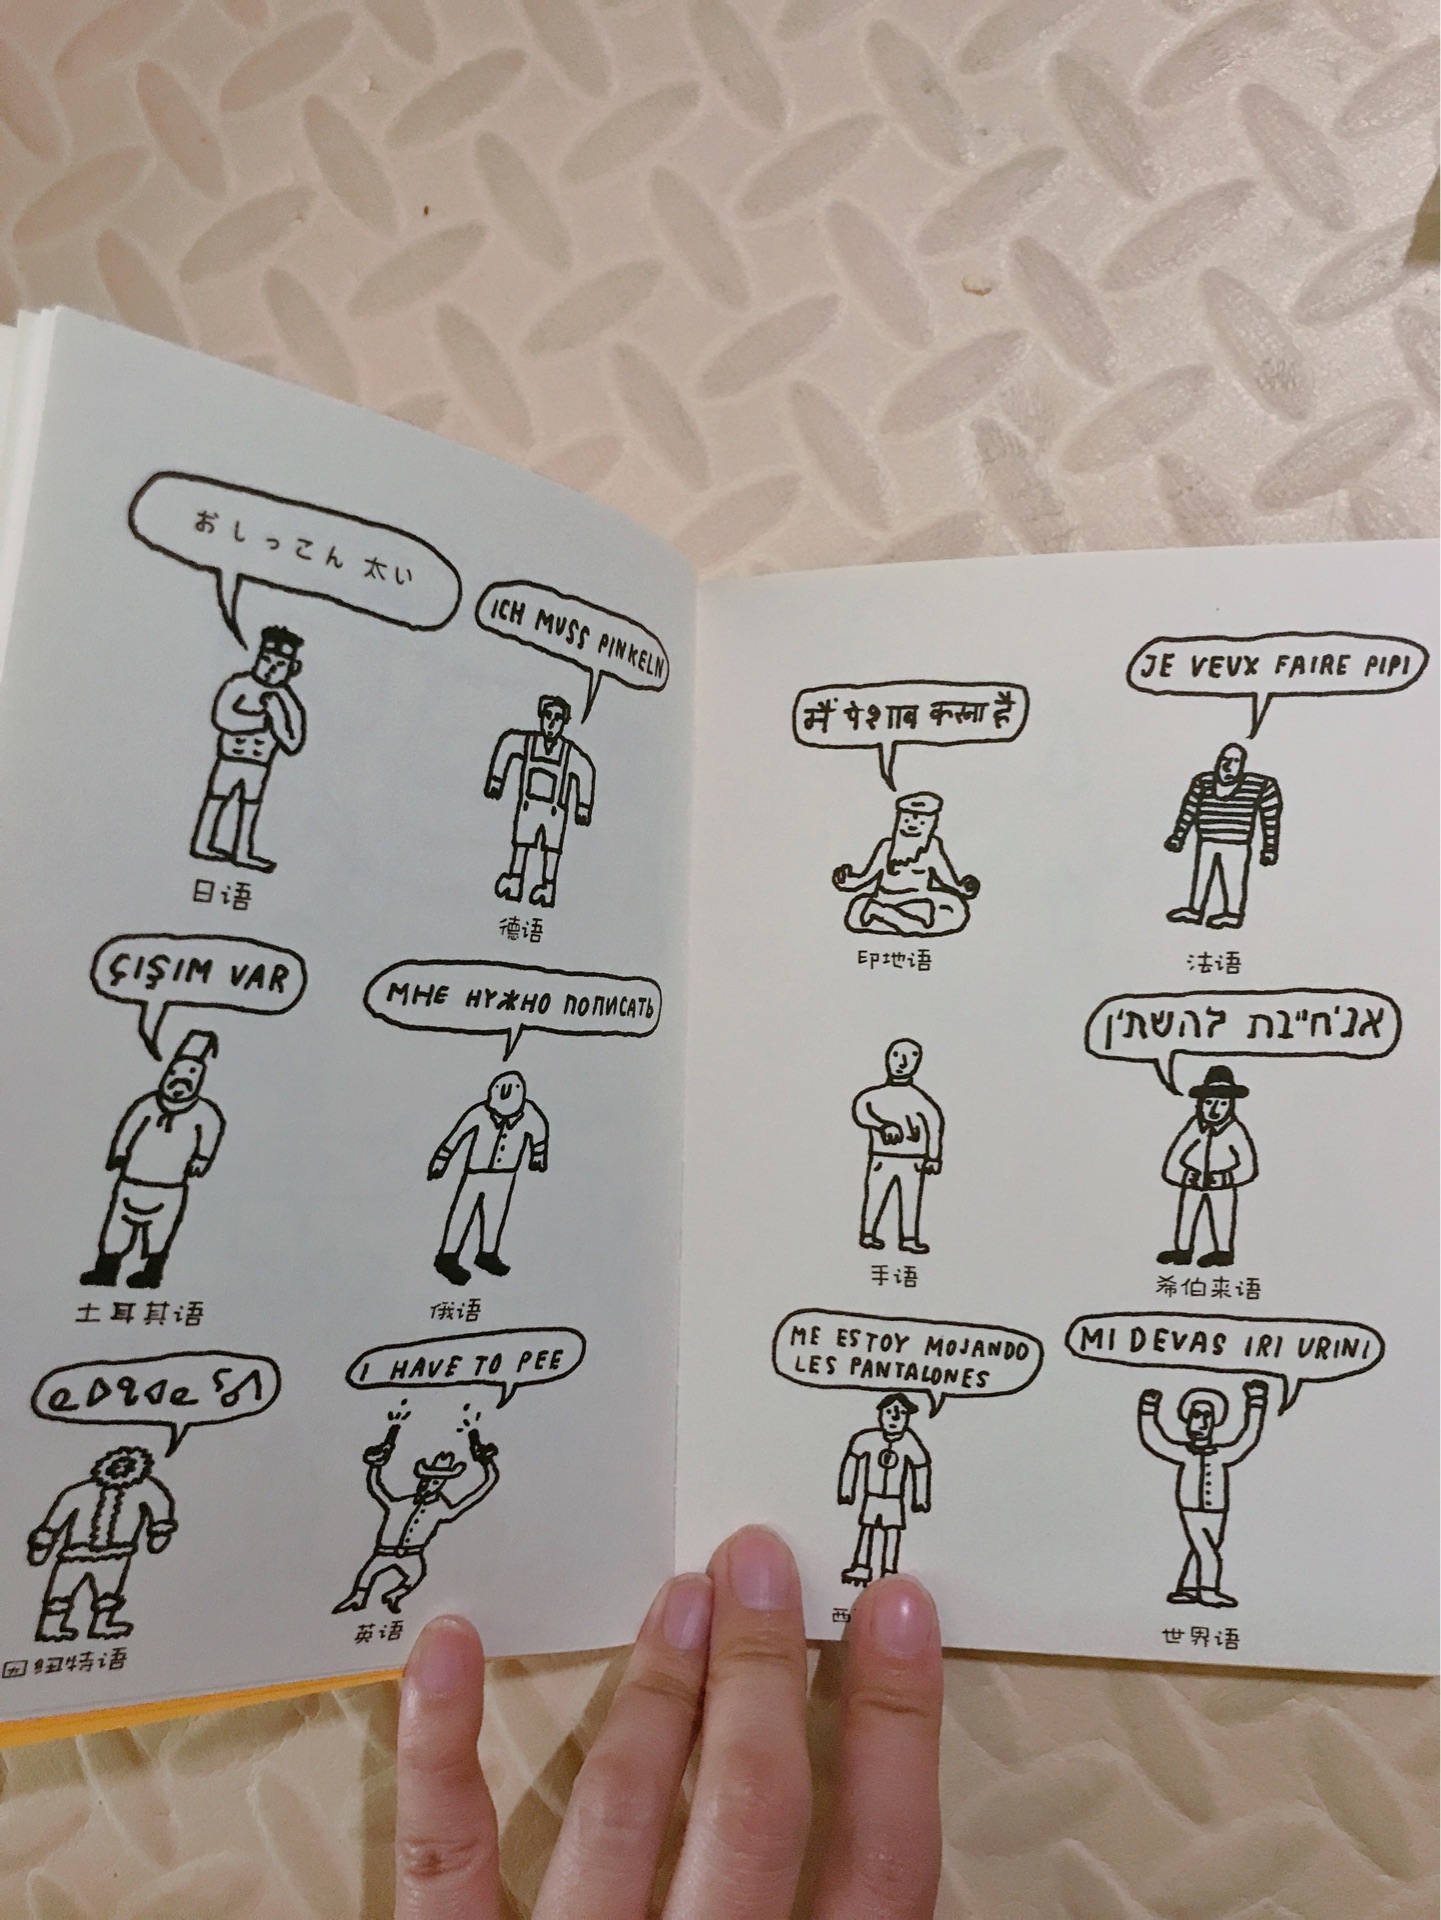 おしっこん 太い
ICH MUSS PINKELN
日语
德语
ÇIŞIM VAR
МНЕ НУЖНО ПОПИСАТЬ
土耳其语
俄语
I HAVE TO PEE
因纽特语
英语
मैं पेशाब करना है
JE VEUX FAIRE PIPI
印地语
法语
אני חייבת להשתין
手语
希伯来语
ME ESTOY MOJANDO
LES PANTALONES
MI DEVAS IRI URINI
西
世界语